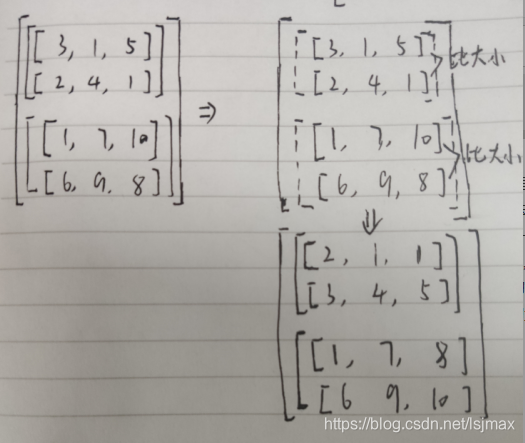 [[[3, 1, 5]
[2, 4, 1]]
[[1, 7, 10]
[6, 9, 8]]]
⇒
[[[3, 1, 5]
[2, 4, 1]]
比大小
[[1, 7, 10]
[6, 9, 8]]]
比大小
⇓
[[[2, 1, 1]
[3, 4, 5]]
[[1, 7, 8]
[6 9, 10]]]
https://blog.csdn.net/lsjmax